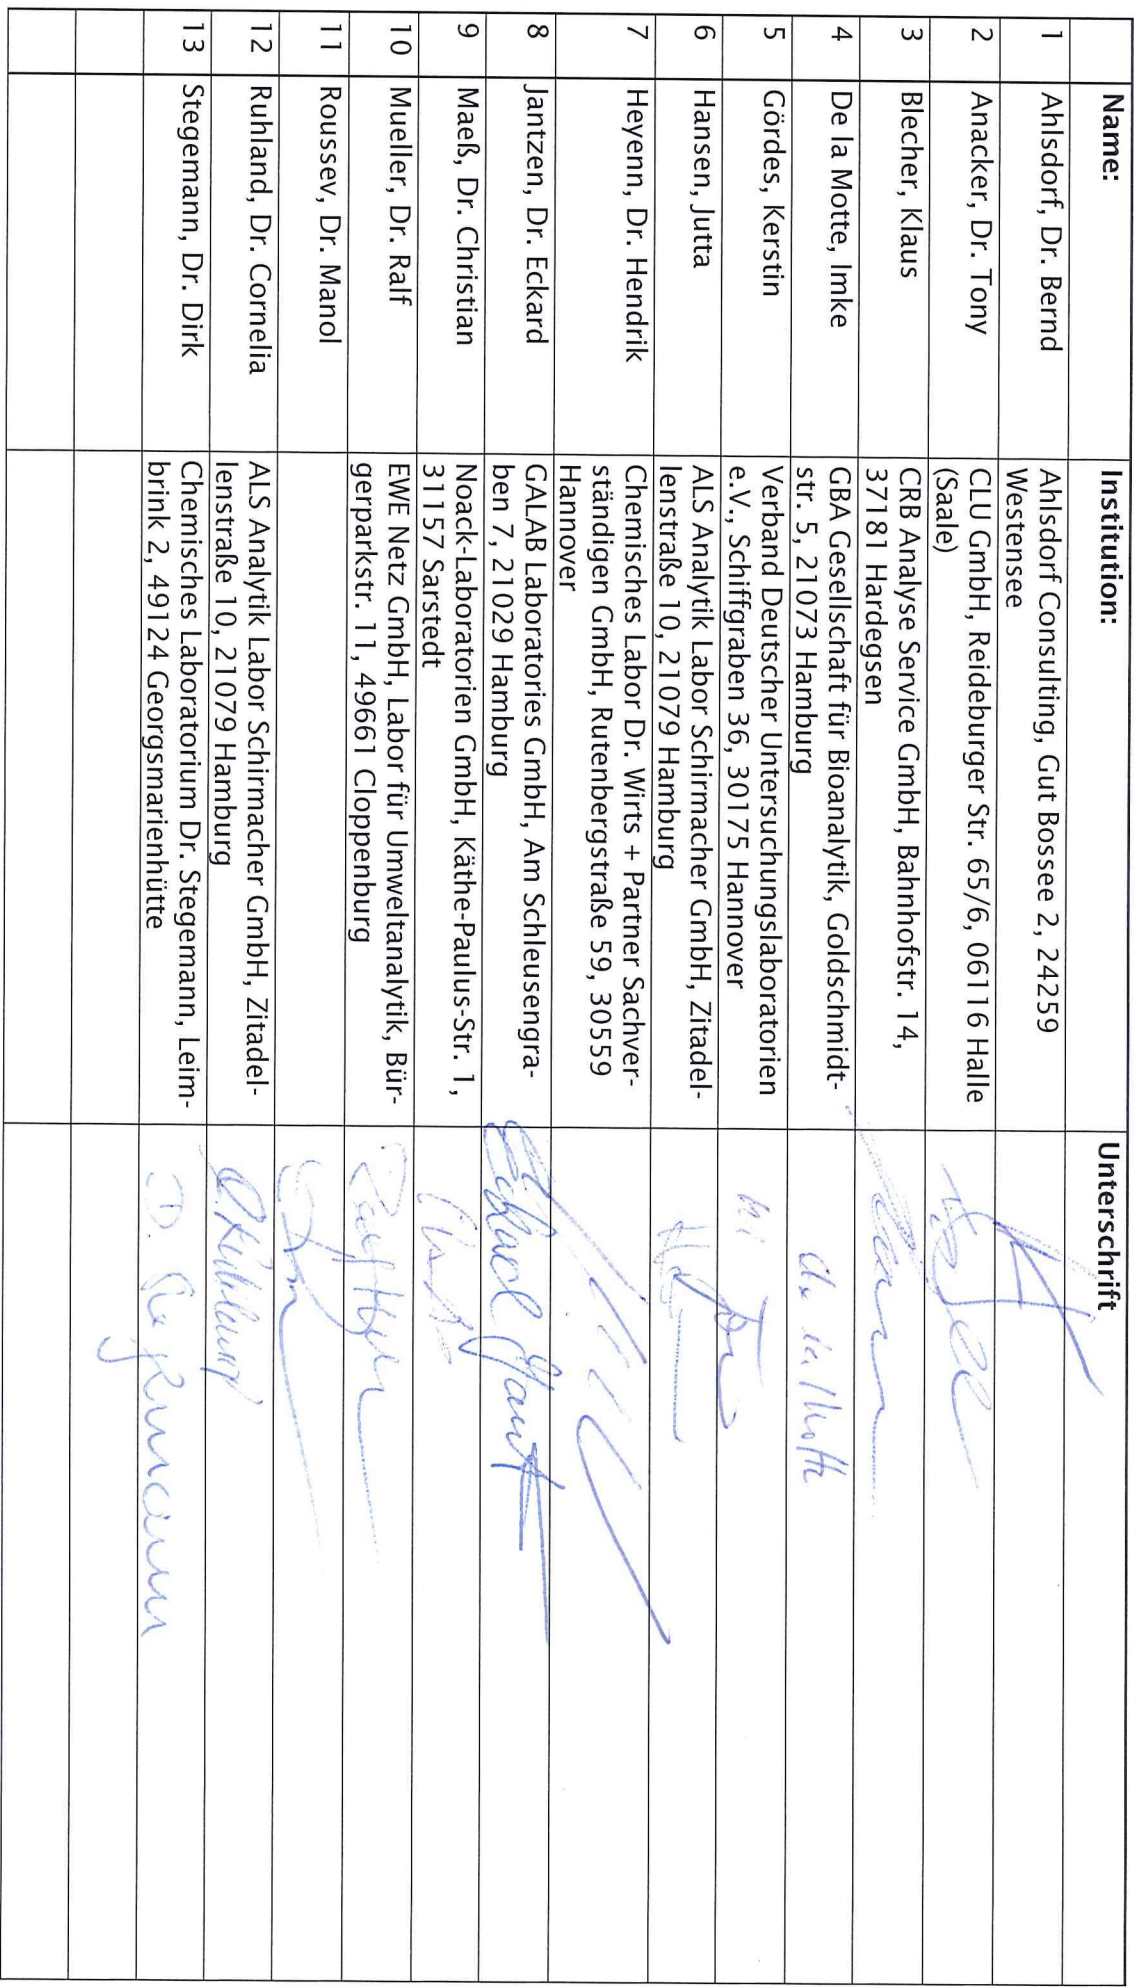 Name: Institution: Unterschrift
1 Ahlsdorf, Dr. Bernd Ahlsdorf Consulting, Gut Bossee 2, 24259
Westensee
2 Anacker, Dr. Tony CLU GmbH, Reideburger Str. 65/6, 06116 Halle
(Saale)
3 Blecher, Klaus CRB Analyse Service GmbH, Bahnhofstr. 14,
37181 Hardegsen
4 De la Motte, Imke GBA Gesellschaft für Bioanalytik, Goldschmidt-
str. 5, 21073 Hamburg
5 Gördes, Kerstin Verband Deutscher Untersuchungslaboratorien
e.V., Schiffgraben 36, 30175 Hannover
6 Hansen, Jutta ALS Analytik Labor Schirmacher GmbH, Zitadel-
lenstraße 10, 21079 Hamburg
7 Heyenn, Dr. Hendrik Chemisches Labor Dr. Wirts + Partner Sachver-
ständigen GmbH, Rutenbergstraße 59, 30559
Hannover
8 Jantzen, Dr. Eckard GALAB Laboratories GmbH, Am Schleusengra-
ben 7, 21029 Hamburg
9 Maeß, Dr. Christian Noack-Laboratorien GmbH, Käthe-Paulus-Str. 1,
31157 Sarstedt
10 Mueller, Dr. Ralf EWE Netz GmbH, Labor für Umweltanalytik, Bür-
gerparkstr. 11, 49661 Cloppenburg
11 Roussev, Dr. Manol
12 Ruhland, Dr. Cornelia ALS Analytik Labor Schirmacher GmbH, Zitadel-
lenstraße 10, 21079 Hamburg
13 Stegemann, Dr. Dirk Chemisches Laboratorium Dr. Stegemann, Leim-
brink 2, 49124 Georgsmarienhütte
D. Stegemann